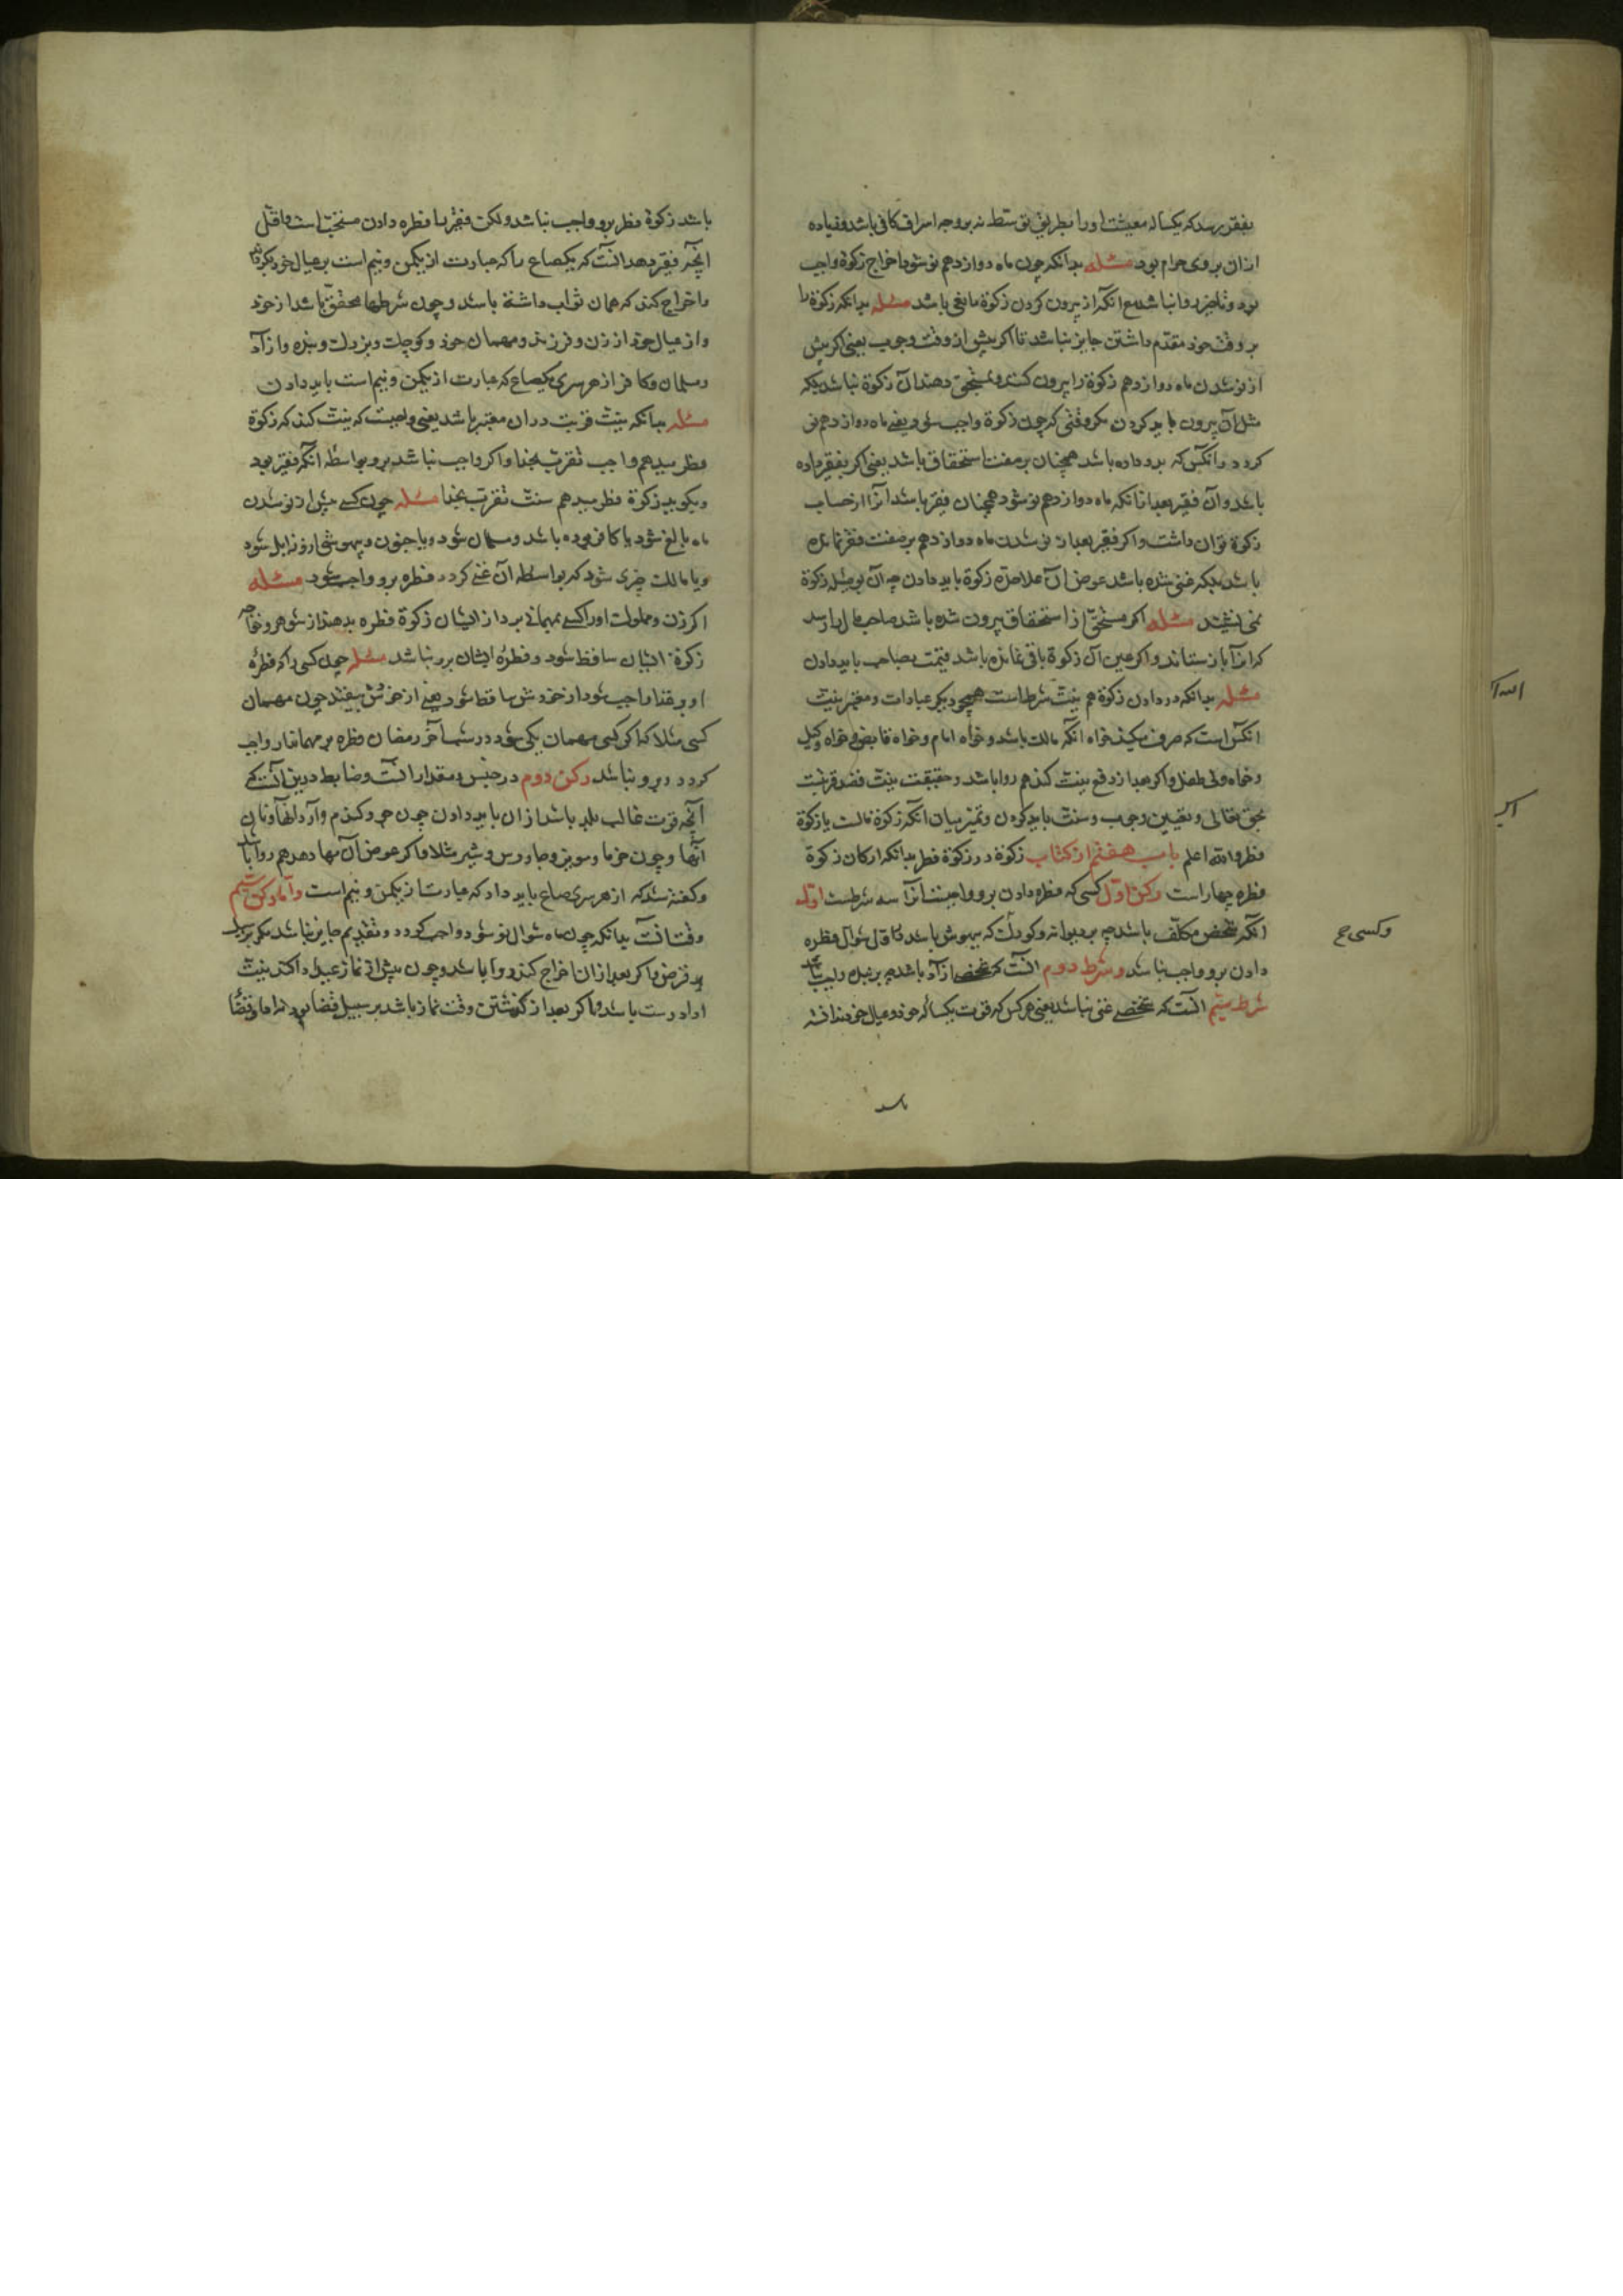 بفقیر برسد که یکساله معیشت او را بطریق توسط نه بر وجه اسراف کافی باشد و زیاده
ازان بروی حرام بود مسئله بدانکه چون ماه دوازدهم نو شود اخراج زکوة واجب
بود و تاخیر روا نباشد مع انکه از بیرون کردن زکوة مانعی باشد مسئله بدانکه زکوة را
بر وقت خود مقدم داشتن جایز نباشد تا اکر پیش از وقت وجوب یعنی اکر پیش
از نو شدن ماه دوازدهم زکوة را بیرون کنند و بمستحق دهند آن زکوة نباشد بلکه
مثل آن بیرون باید کردن مکر وقتی که چون زکوة واجب شود یعنی ماه دوازدهم نو
کردد و آنکس که بدو داده باشد همچنان بر صفت استحقاق باشد یعنی اکر بفقیر داده
باشد و آن فقیر بعد ازانکه ماه دوازدهم نو شود همچنان فقیر باشد آنرا از حساب
زکوة توان داشت و اکر فقیر بعد از نو شدن ماه دوازدهم بر صفت فقر نمانده
باشد بلکه غنی شده باشد عوض آن علاحده زکوة باید دادن چه آن بر مثل زکوة
نمی نشیند مسئله اکر مستحق از استحقاق بیرون شده باشد صاحب مال را رسد
که انرا باز ستاند و اکر عین آن زکوة باقی نمانده باشد قیمت بصاحب باید دادن
مسئله بدانکه در دادن زکوة هم نیت شرط است همچو دیکر عبادات و معتبر نیت
آنکس است که صرف میکند خواه آنکه مالک باشد و خواه امام و خواه قابض و خواه وکیل
و خواه ولی طفل و اکر بعد از دفع نیت کند هم روا باشد و حقیقت نیت قصد قربت
بحق تعالی و تعیین وجوب و سنت باید کردن و تمیز میان آنکه زکوة مالست یا زکوة
فطر والله اعلم باب هفتم از کتاب زکوة در زکوة فطر بدانکه ارکان زکوة
فطره چهار است رکن اول کسی که فطره دادن برو واجبست انرا سه شرطست اول
آنکه شخص مکلف باشد چه بر دیوانه و کودک که بیهوش باشد تا اول شوال فطره
دادن برو واجب نباشد و شرط دوم انست که شخص ازاد باشد چه بر بنده واجب نباشد
شرط سیم انست که شخصی غنی باشد یعنی هر کس که قوت یکساله خود و عیال خود نداشته
وکسی ح
باشد
باشد زکوة فطر برو واجب نباشد ولکن فقیر را فطره دادن مستحب است و اقل
آنچه فقیر دهد انست که یکصاع را که عبارت از یکمن و نیم است بر عیال خود بکرداند
و اخراج کند که همان ثواب داشته باشد و چون شرطها محقق باشد از خود
و از عیال خود از زن و فرزند و مهمان خود و کوچک و بزرک و بنده و ازاد
و مسلمان و کافر از هر سری یکصاع که عبارت از یکمن و نیم است باید دادن
مسئله بدانکه نیت قربت دران معتبر باشد یعنی واجبست که نیت کند که زکوة
فطر میدهم واجب تقرب بخدا و اکر واجب نباشد برو بواسطه آنکه فقیر بود
و بکوید زکوة فطر میدهم سنت تقرب بخدا مسئله چون کسی پیش از نو شدن
ماه بالغ شود یا کافر بوده باشد و مسلمان شود و یا جنون و بیهوشی ازو زایل شود
و یا مالک چیزی شود که بواسطه آن غنی کردد فطره برو واجب شود مسئله
اکر زن و مملوک او را کسی بمهمانی برد از ایشان زکوة فطره بدهند از شوهر و خواجه
زکوة ایشان ساقط شود و فطره ایشان برو نباشد مسئله چون کسی را که فطره
او بر غیر واجب شود از خودش ساقط شود یعنی از خودش بیفتد چون مهمان
کسی مثلا که اکر کسی مهمان یکی شود در شب آخر رمضان فطره بر مهماندار واجب
کردد و برو نباشد رکن دوم در جنس و مقدار انست و ضابط درین انست که
آنچه قوت غالب بلد باشد ازان باید دادن چون جو و کندم و آرد انها و نان
انها و چون خرما و مویز و جاورس و شیر مثلا و اکر عوض آن بها دهد هم روا باشد
و کفته شد که از هر سری صاع باید داد که عبارت از یکمن و نیم است و اما رکن سیم
وقت انست بدانکه چون ماه شوال نو شود واجب کردد و تقدیم جایز نباشد مکر بر سبیل
قرض و اکر بعد ازان اخراج کند روا باشد و چون پیش از نماز عید ادا کند نیت
ادا درست باشد و اکر بعد از کذشتن وقت نماز باشد بر سبیل قضا بود